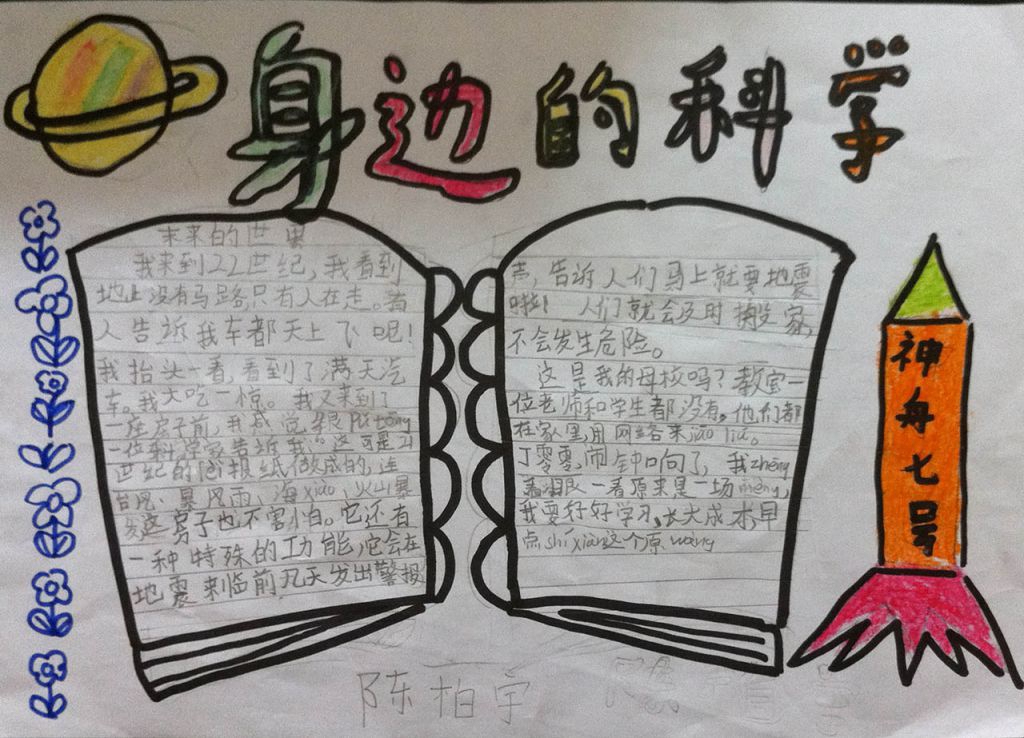 身边的科学
未来的世界
我来到22世纪,我看到
地上没有马路,只有人在走。有
人告诉我车都天上飞呢!
我抬头一看,看到了满天汽
车。我大吃一惊。我又来到了
一座房子前,我感觉很pǔ tōng
一位科学家告诉我"这可是22
世纪的
纸做成的,连
台风、暴风雨、海xiào、火山暴
发这房子也不害怕。它还有
一种特殊的功能,它会在
地震来临前几天发出警报
声,告诉人们马上就要地震
啦! 人们就会及时搬家,
不会发生危险。
这是我的母校吗?教室一
位老师和学生都没有。他们都
在家里,用网络来jiāo liú。
丁零零,闹钟响了,我zhēng
眼一看原来是一场mèng,
我要好好学习,长大成
早
点shí xiàn这个原wàng
神舟七号
陈柏宇